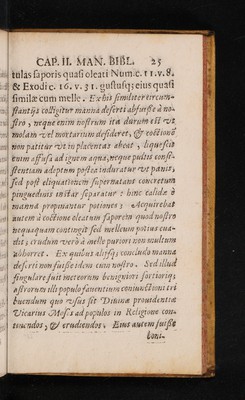 CAP. II. MAN. BIBL. 25
tulas saporis quasi oleati Num c. 11. v. 8.
& Exodi c. 16. v. 31. gustusq; eius quasi
similæ cum melle. Ex his similiter circum-
stantijs colligitur manna deserti abfuisse à no-
stro, neque enim nostrum ita durum est vt
molam vel mortarium desideret, & coctionẽ
non patitur vt in placentas abeat, liquescit
enim assusa ad ignem aqua, neque pultis consi-
stentiam adeptum postea induratur vt panis,
sed post eliquationem supernatans concretum
pinguedinis instar separatur: hinc calida à
manna propinantur potiones; Acquirebat
autem à coctione olearum saporem quod nostro
nequaquam contingit sed melleum potius eua-
dit, crudum verò à melle parum non multum
abhorret. Ex quibus alijsq; concludo manna
deserti non fuisse idem cum nostro. Sed illud
singulare fuit meteorum benigniori sortioriq;
astrorum illi populo fauentium coniunctioni tri
buendum quo vsus sit Diuinæ prouidentiæ
Vicarius Moses ad populos in Religione con-
tinendos, & erudiendos. Eius autem fuisse